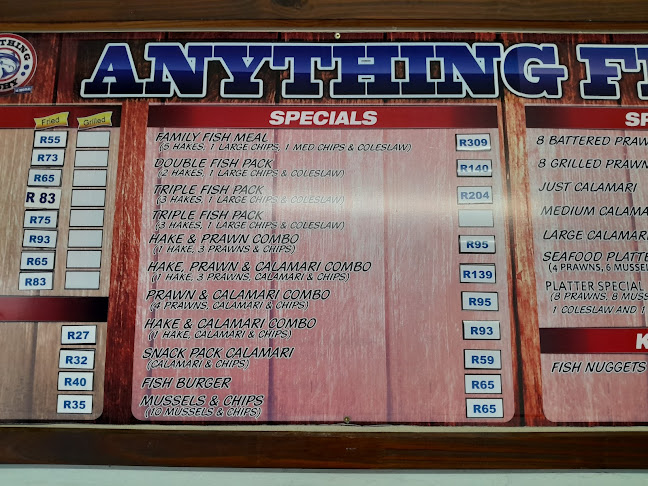 YTHING
ANYTHING F
Fried Grilled
R55
R73
R65
R 83
R75
R93
R65
R83
R27
R32
R40
R35
SPECIALS
FAMILY FISH MEAL R309
(5 HAKES, 1 LARGE CHIPS, 1 MED CHIPS & COLESLAW)
DOUBLE FISH PACK R140
(2 HAKES, 1 LARGE CHIPS & COLESLAW)
TRIPLE FISH PACK R204
(3 HAKES, 1 LARGE CHIPS & COLESLAW)
TRIPLE FISH PACK
(3 HAKES, 1 LARGE CHIPS & COLESLAW)
HAKE & PRAWN COMBO R95
(1 HAKE, 3 PRAWNS & CHIPS)
HAKE, PRAWN & CALAMARI COMBO R139
(1 HAKE, 3 PRAWNS, CALAMARI & CHIPS)
PRAWN & CALAMARI COMBO R95
(4 PRAWNS, CALAMARI & CHIPS)
HAKE & CALAMARI COMBO R93
(1 HAKE, CALAMARI & CHIPS)
SNACK PACK CALAMARI R59
(CALAMARI & CHIPS)
FISH BURGER R65
MUSSELS & CHIPS R65
(10 MUSSELS & CHIPS)
SP
8 BATTERED PRAW
8 GRILLED PRAWN
JUST CALAMARI
MEDIUM CALAMA
LARGE CALAMARI
SEAFOOD PLATTE
(4 PRAWNS, 6 MUSSEL
PLATTER SPECIAL
(8 PRAWNS, 8 MUSS
1 COLESLAW AND 1
K
FISH NUGGETS